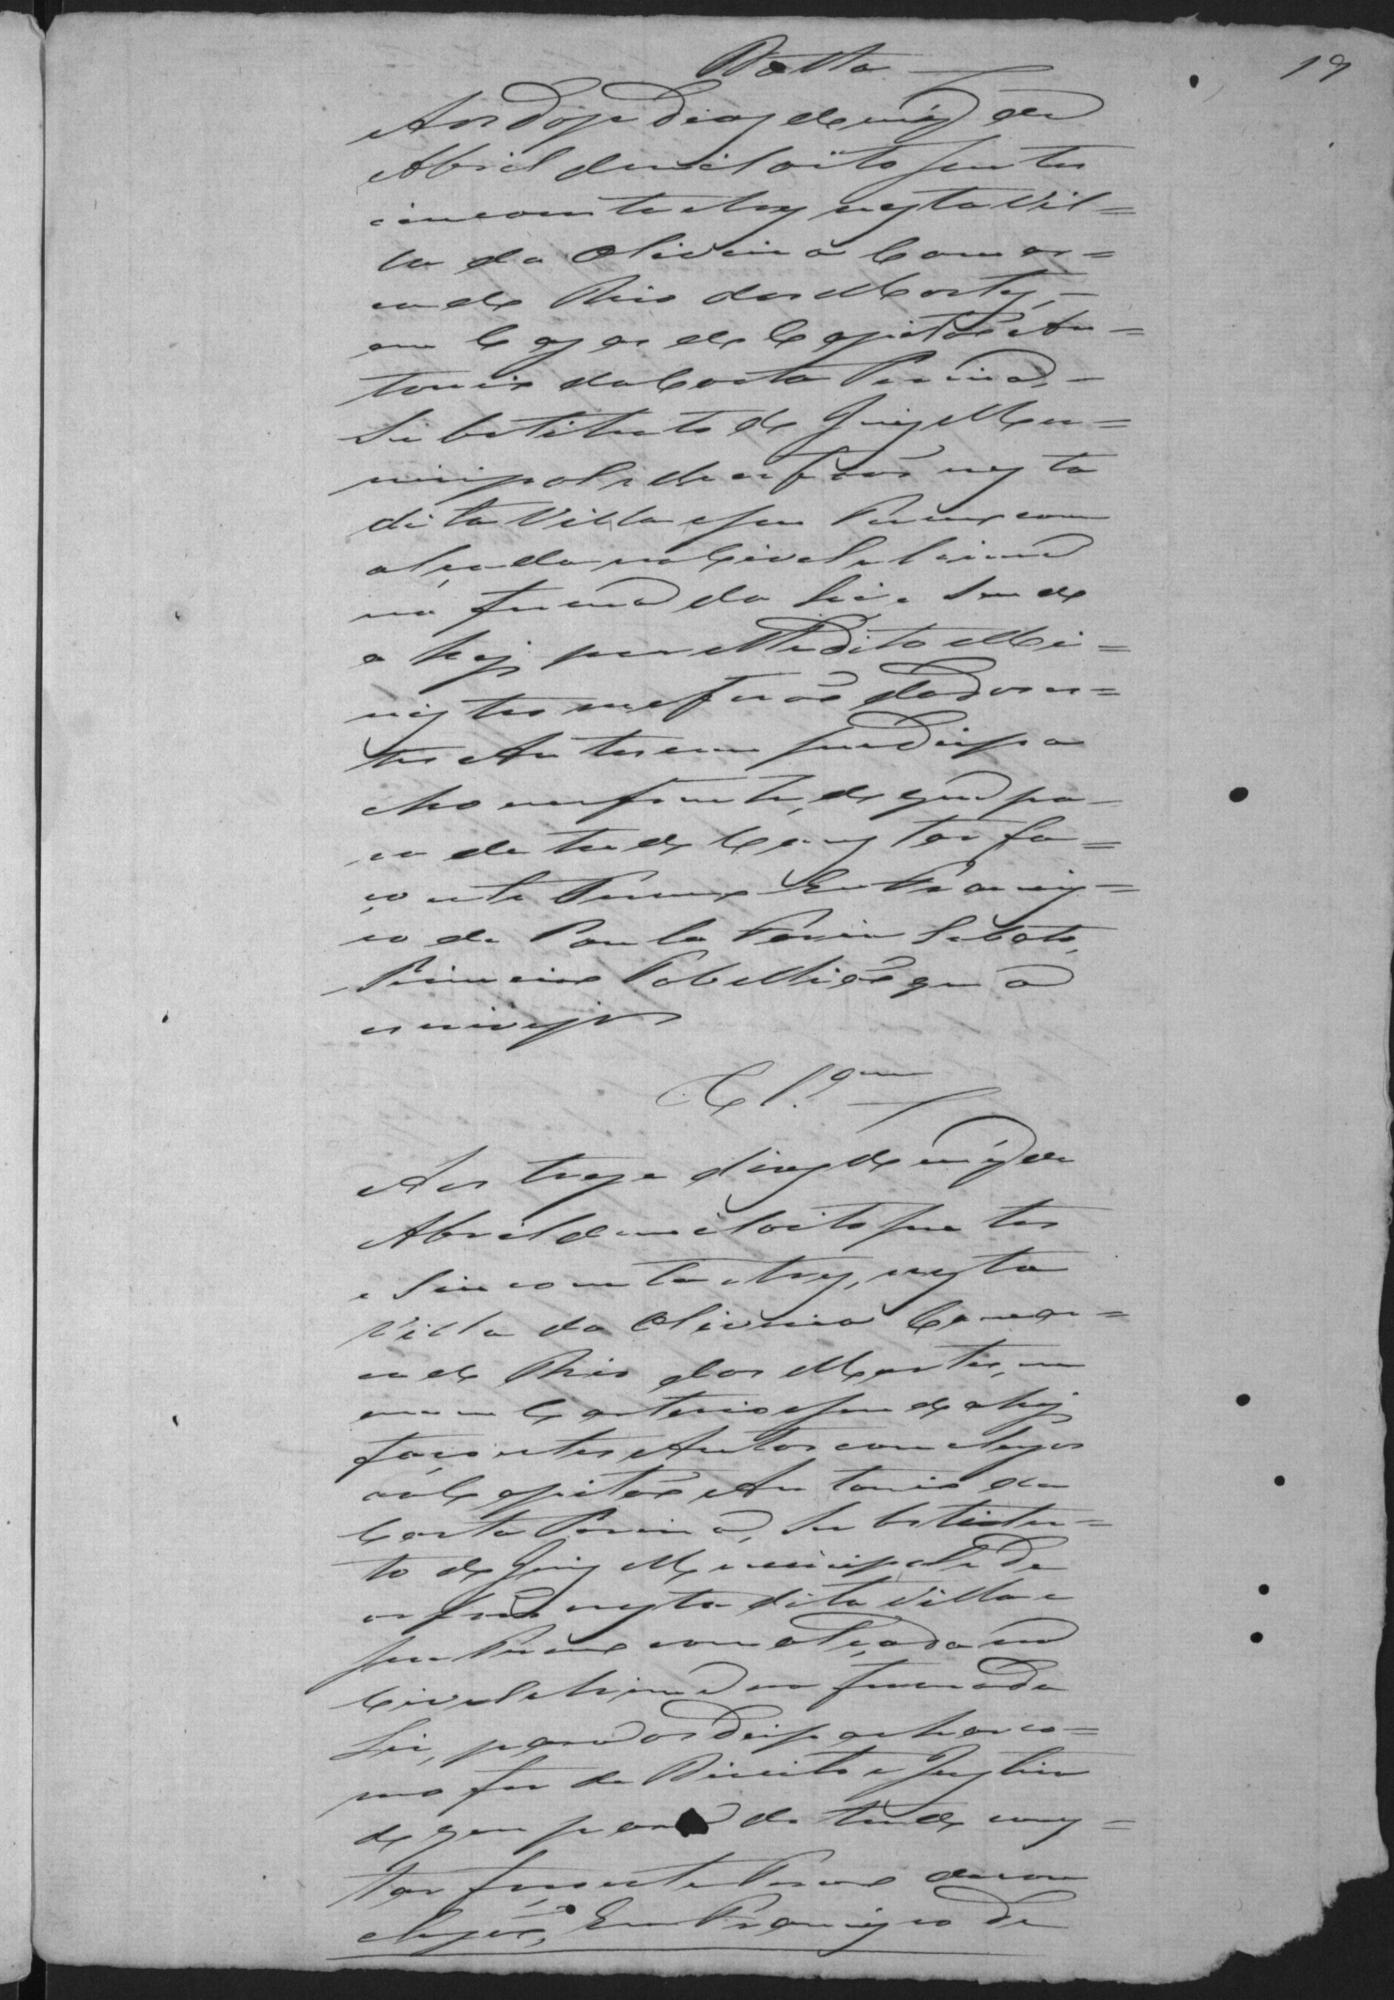 19
Datta
Aos doze dias do mez de
Abril de mil oito sentos
cincoenta e trez nesta Vil=
la da Oliveira Comar=
ca do Rio das Mortes,
em Cazas do Capitão An=
tonio da Costa Pereira,
Substituto do Juiz Mu=
nicipal e de orfaos nesta
dita Villa e seu Termo com
alçada no Civel e Crime
na forma da Lei e sendo
ahi por elle dito Mi=
nistro me forão dados es=
tes Autos com seu Despa
cho em frente, de que pa-
ra de tudo Constar fa=
ço este Termo Eu Francis=
co de Paula
Primeiro Tabellião que o
escrevi
Cl.ᵃᵐ
Aos treze dias do mez de
Abril de mil oito sentos
e sincoenta e trez, nesta
Villa da Oliveira Comar=
ca do Rio das Mortes, em
meu Cartorio e sendo ahi
faço estes Autos conclusos
ao Capitão Antonio da
Costa Pereira, Substitu=
to do Juiz Municipal e de
orfaos nesta dita Villa e
seu Termo com alçada no
Civel e Crime na forma da
Lei, para os Despachar co=
mo for de Direito e Justiça
do que para de tudo cons=
tar faço este Termo de con
clusão, Eu Francisco de